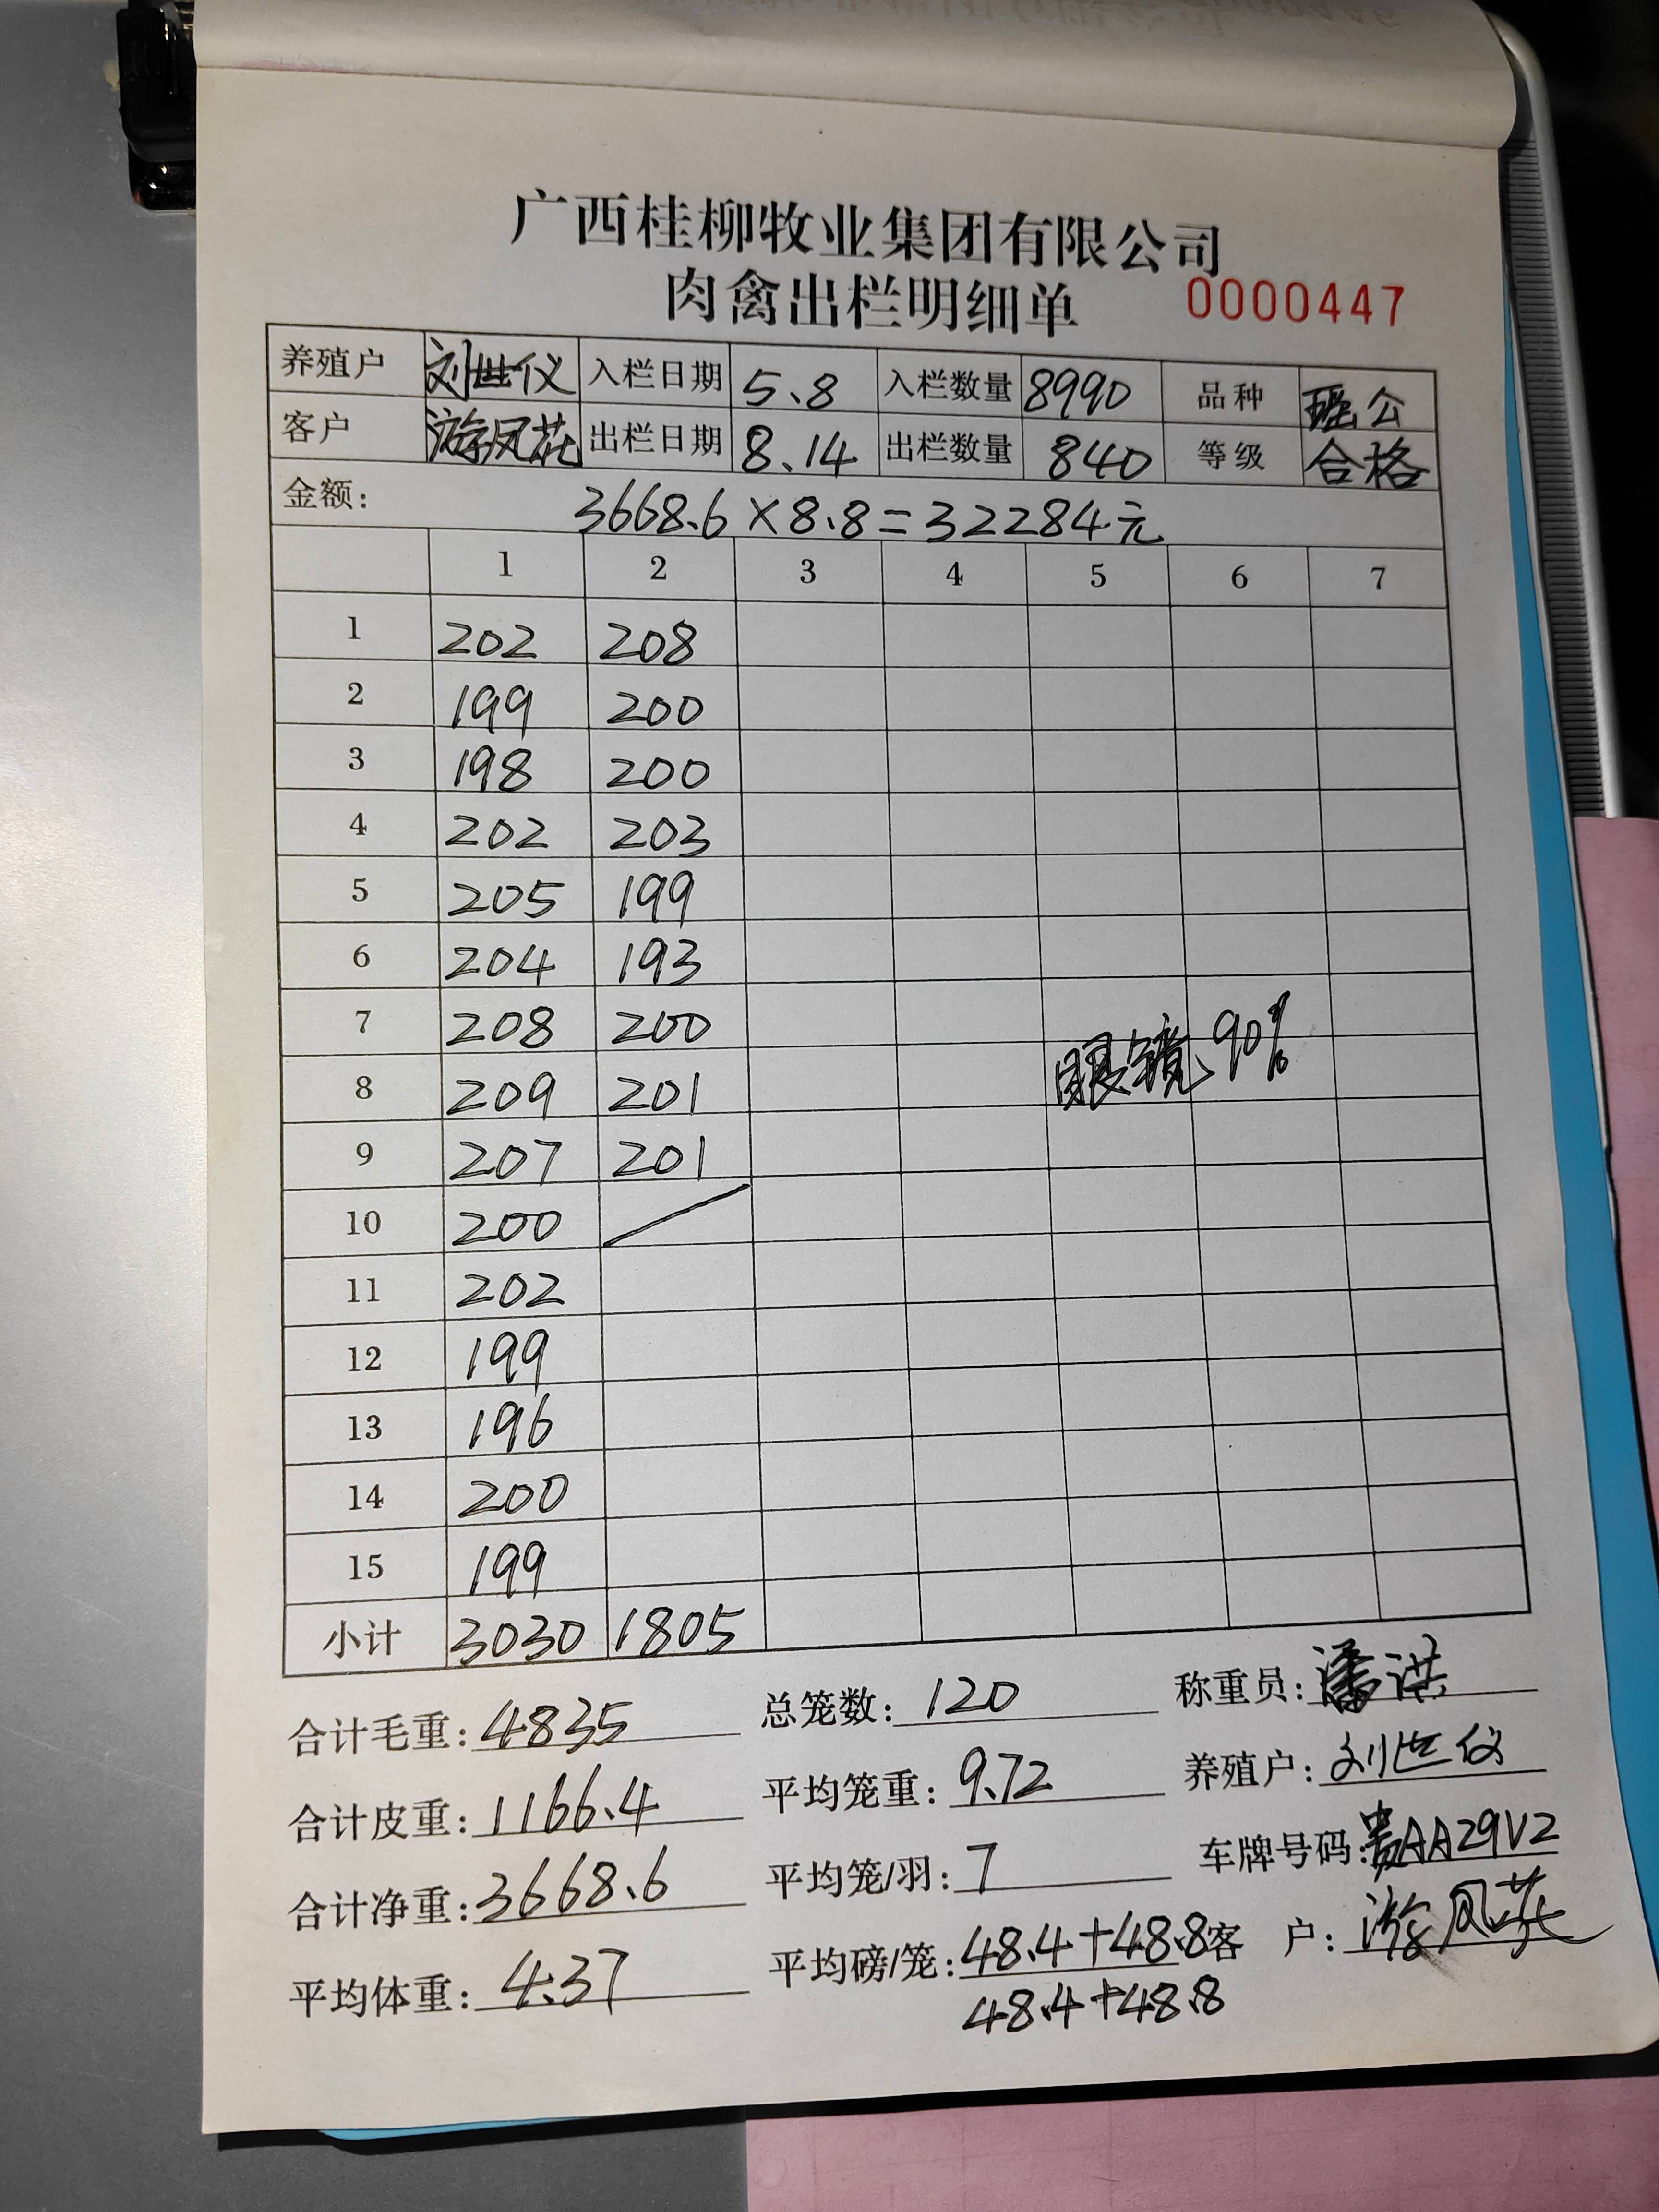 广西桂柳牧业集团有限公司
肉禽出栏明细单 0000447
养殖户 刘世仪 入栏日期 5.8 入栏数量 8990 品种 瑶公
客户 游凤花 出栏日期 8.14 出栏数量 840 等级 合格
金额: 3668.6×8.8=32284元
1 2 3 4 5 6 7
1 202 208
2 199 200
3 198 200
4 202 203
5 205 199
6 204 193
7 208 200
眼镜90%
8 209 201
9 207 201
10 200
11 202
12 199
13 196
14 200
15 199
小计 3030 1805
合计毛重: 4835 总笼数: 120 称重员: 潘洪
合计皮重: 1166.4 平均笼重: 9.72 养殖户: 刘世仪
合计净重: 3668.6 平均笼/羽: 7 车牌号码: 贵AA29V2
平均体重: 4.37 平均磅/笼: 48.4+48.8 客 户: 游凤花
48.4+48.8